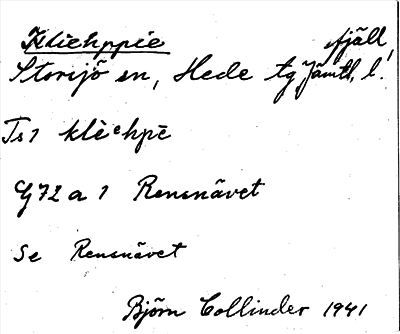 Kliehppie fjäll,
Storsjö sn, Hede tg Jämtl. l.
Ts1 klèehpē
G72 a 1 Rensnävet
Se Rensnävet
Björn Collinder 1941